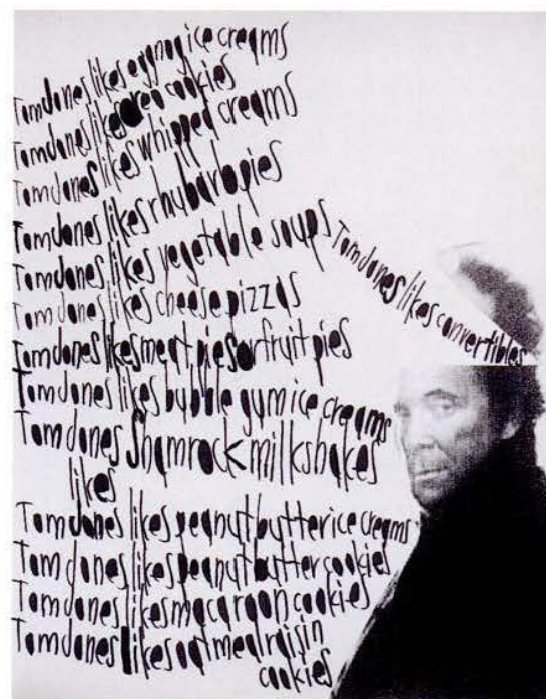 Tom Jones likes eggnog ice creams
Tom Jones likes oreo cookies
Tom Jones likes whipped creams
Tom Jones likes rhubarb pies
Tom Jones likes vegetable soups
Tom Jones likes convertibles
Tom Jones likes cheese pizzas
Tom Jones likes meat pies or fruit pies
Tom Jones likes bubble gum ice creams
Tom Jones Shamrock milkshakes
likes
Tom Jones likes peanut butter ice creams
Tom Jones likes peanut butter cookies
Tom Jones likes macaroon cookies
Tom Jones likes oatmeal raisin
cookies